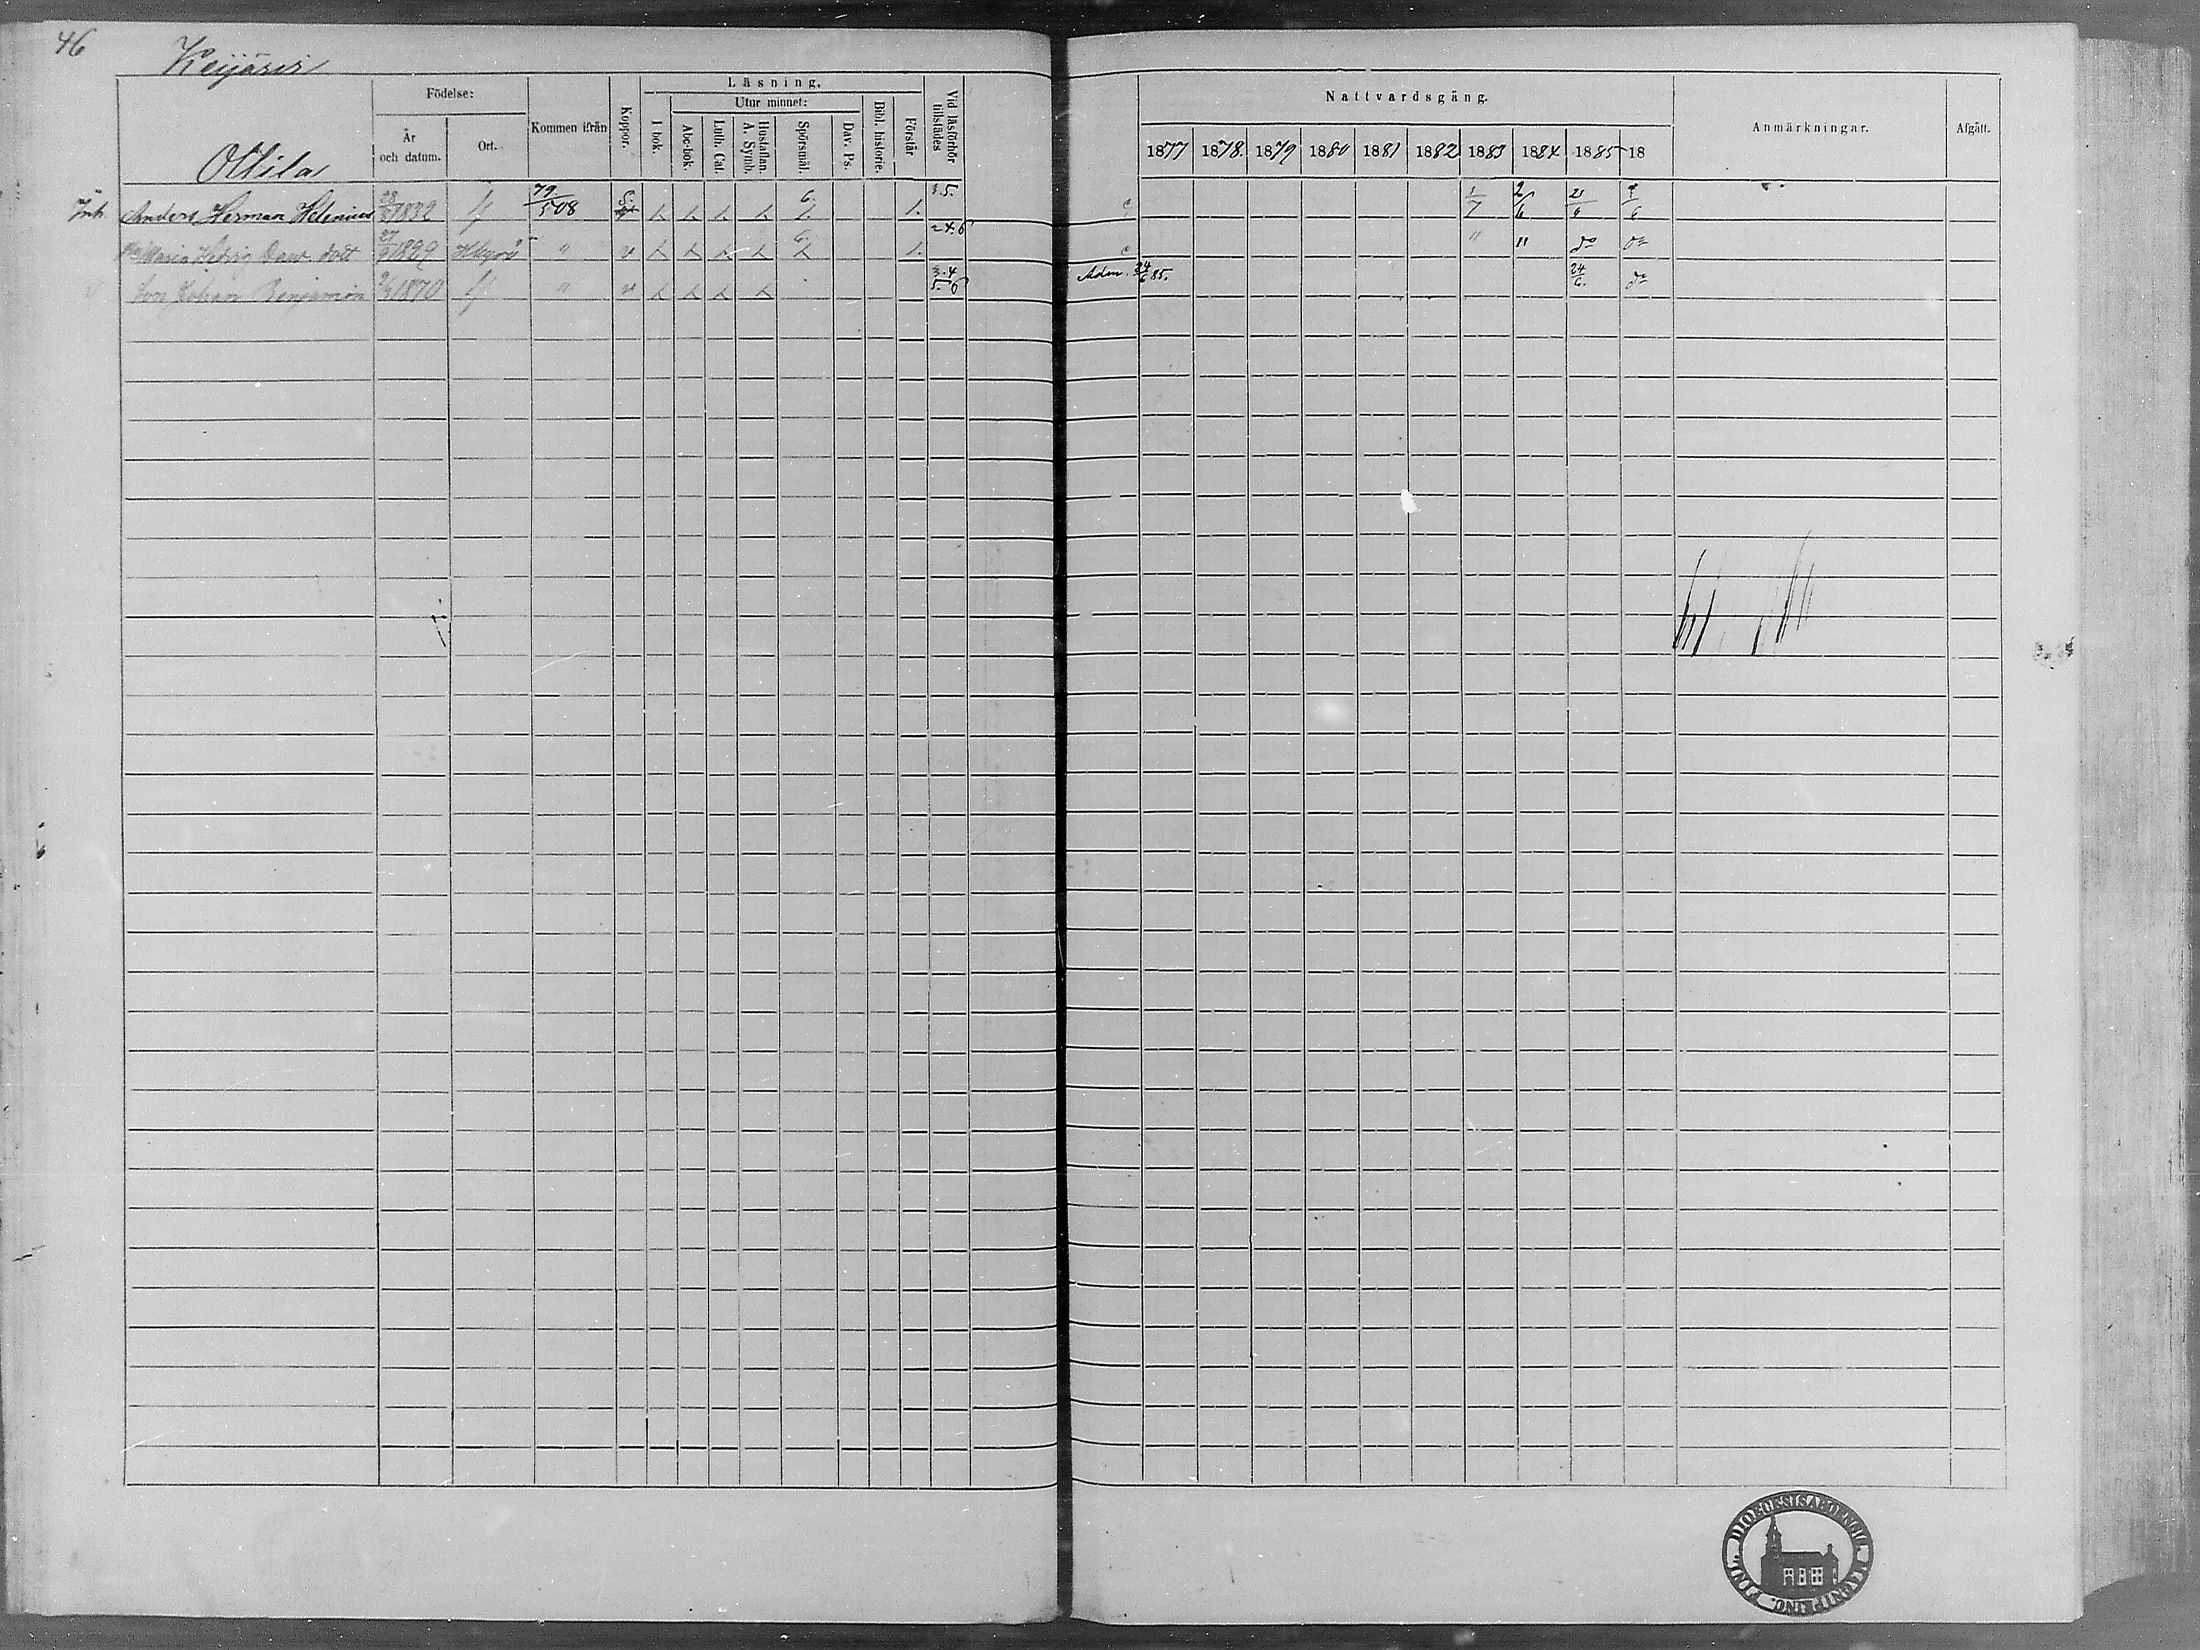 46
Keijäris
Födelse:
Kommen ifrån
Koppor.
Läsning.
Utur minnet:
Vid läsförhör tillstädes
År och datum.
Ort.
I bok.
Abc-bok.
Luth. Cat.
Hustaflan. A. Symb.
Spörsmål.
Dav. Ps.
Bibl. historie.
Förstår
Nattvardsgång.
Anmärkningar.
Afgått.
1877 1878. 1879 1880 1881 1882 1883 1884 1885 18
Ottila
Inh Anders Herman Helenius 1832 79/508 6. 1. 3.5. c 1/7 2/6
Maria Hedvig 1829 " v 6. 1. 2.4.6 c " " do do
Son Johan Benjamin 1870 " v 3.4 5.6 Adm. 24/6 85. 24/6. do